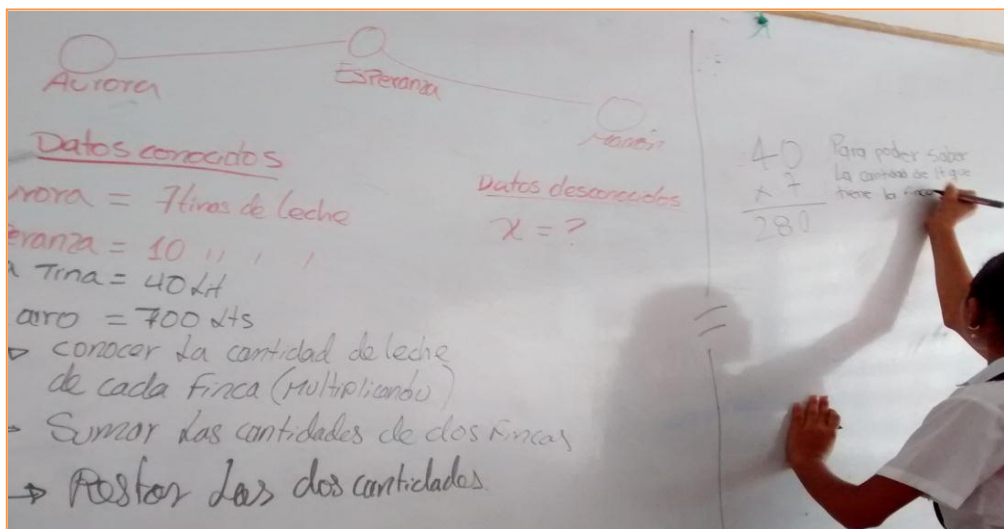 Aurora
Esperanza
Datos conocidos
urora = 7 tinas de leche
eranza = 10 " " "
a Tina = 40 Lt
arro = 700 Lts
conocer La cantidad de leche
de cada Finca (Multiplicando)
Sumar Las cantidades de dos Fincas
→ Restar Las dos cantidades
Datos desconocidos
x = ?
40
x 7
280
Para poder saber
La cantidad de lt que
tiene la